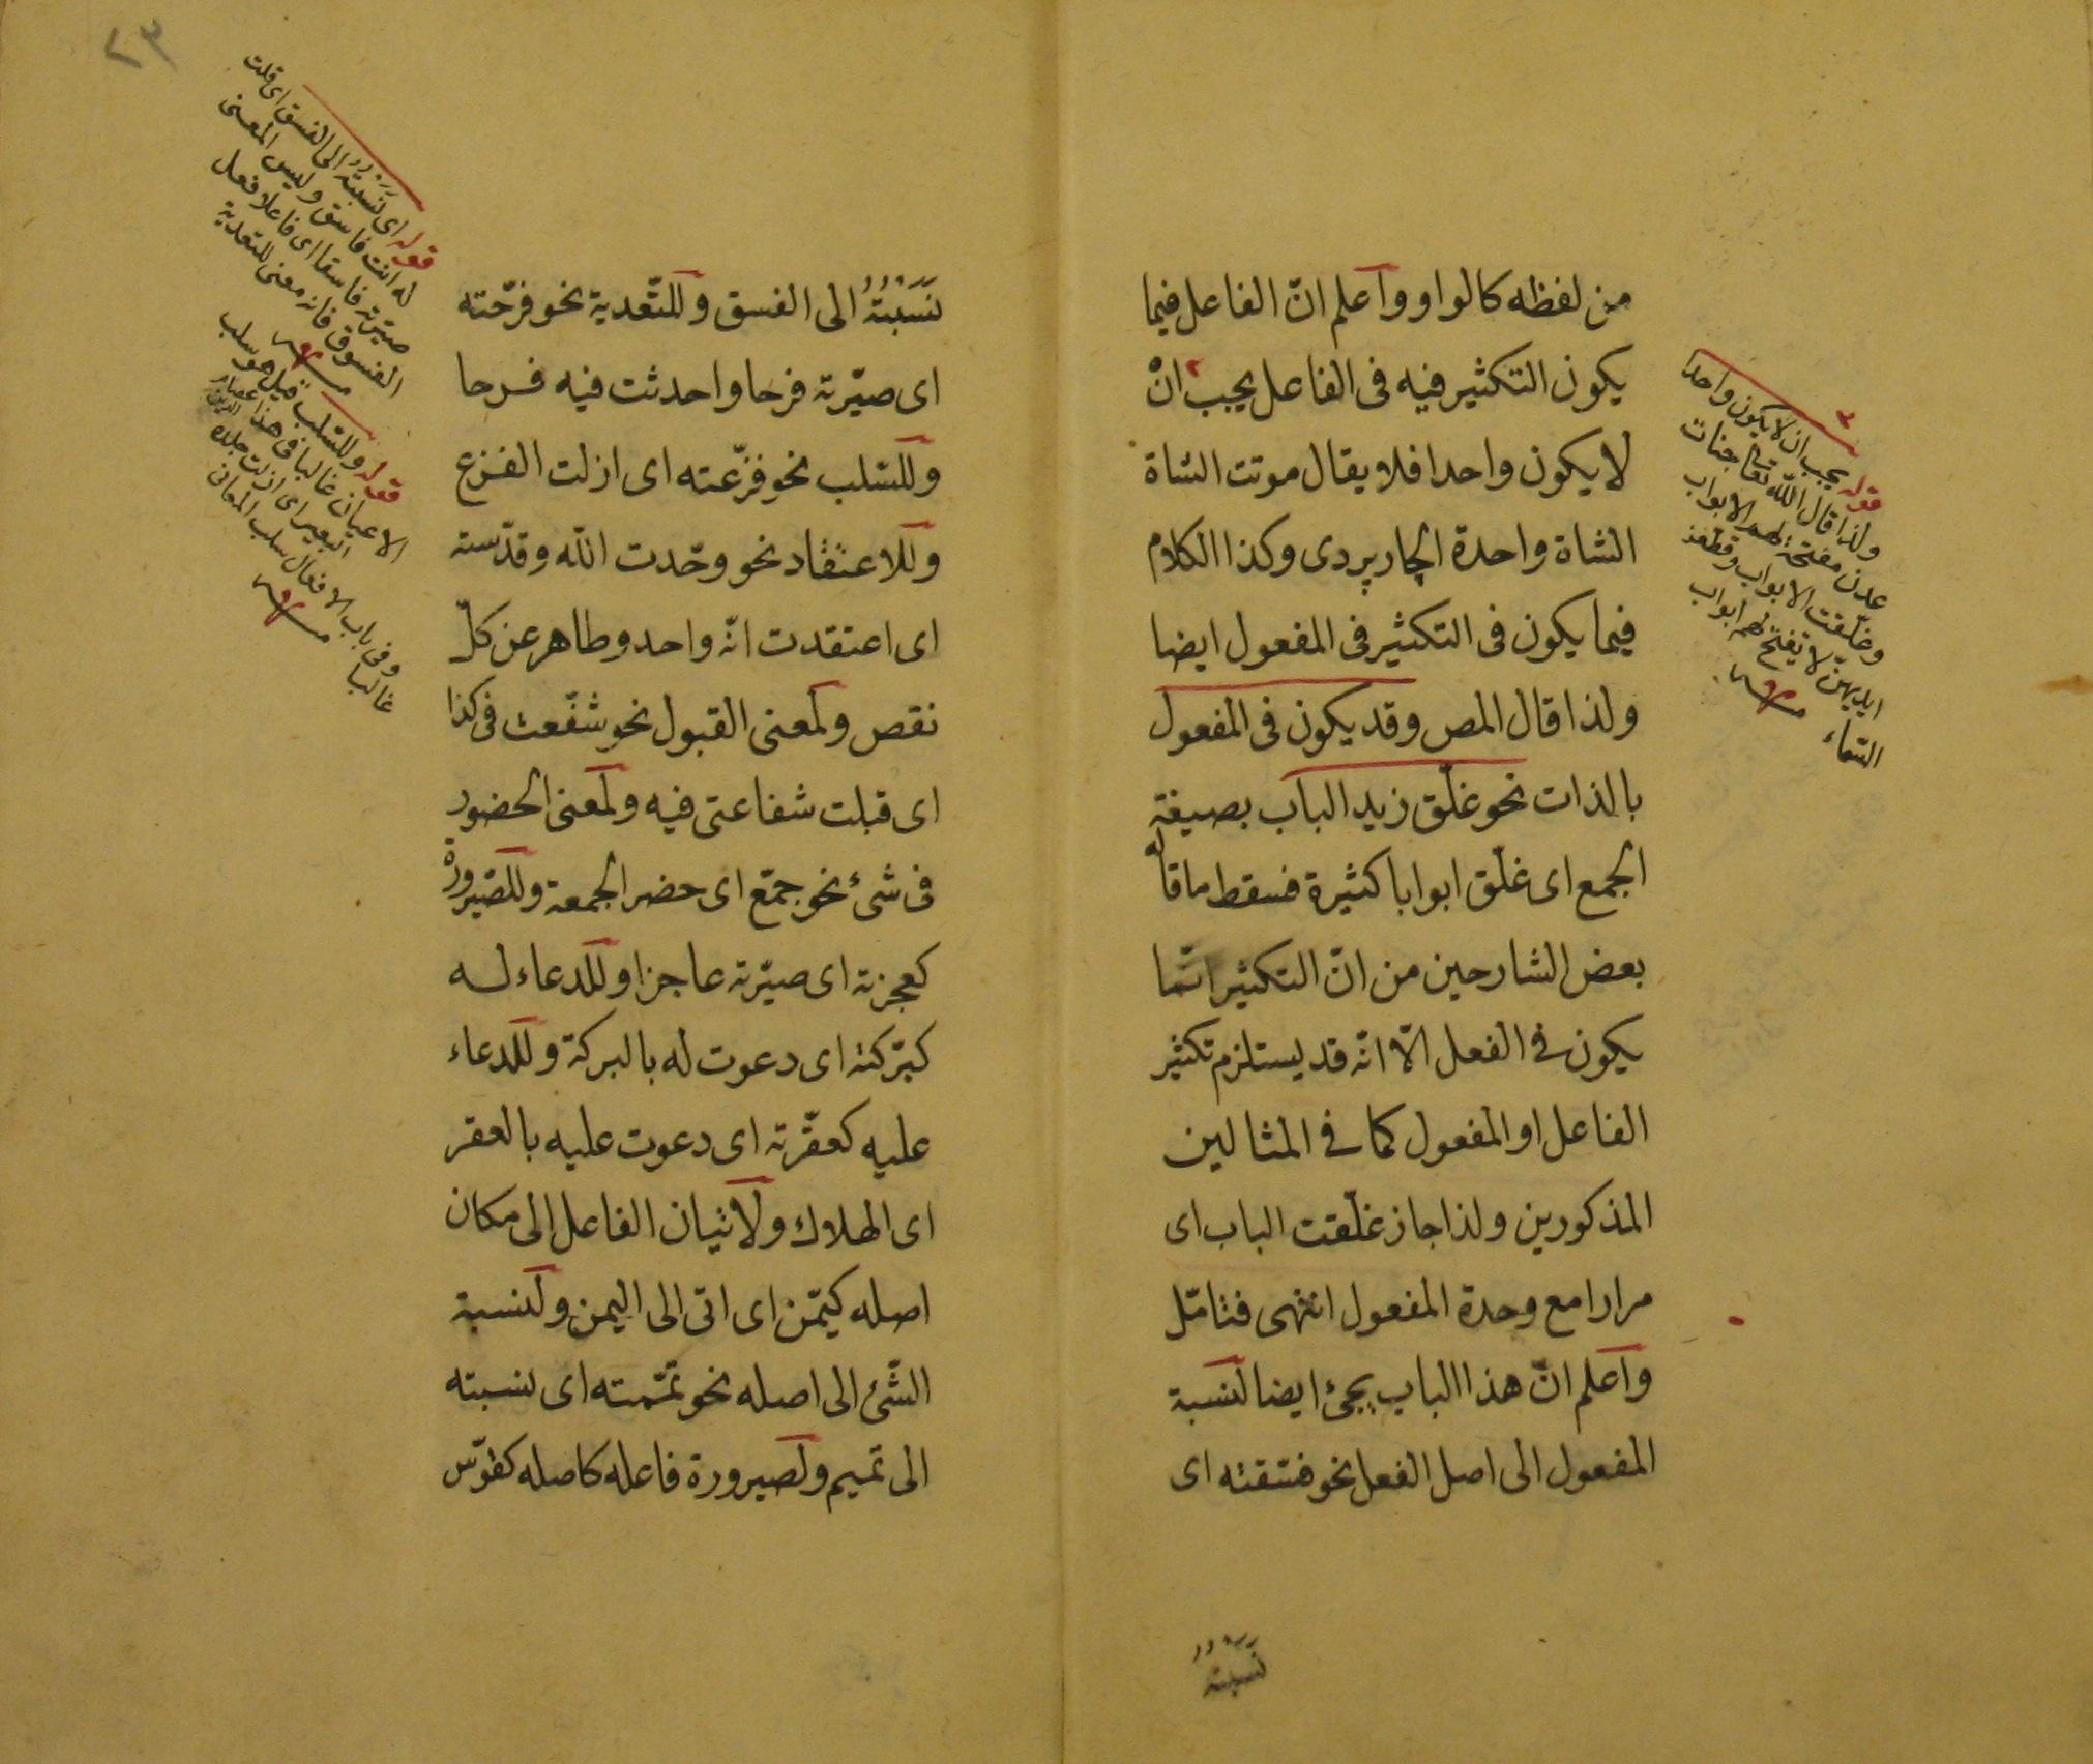 من لفظه كالواو وٱعلم انّ الفاعل فيما
يكون التكثير فيه فى الفاعل يجب٢ انْ
لا يكون واحدا فلا يقال موتت الشاة
الشاة واحدة الچارپردى وكذا الكلام
فيما يكون فى التكثير فى المفعول ايضا
ولذا قال المص وقد يكون فى المفعول
بالذات نحو غلّق زيد الباب بصيغة
الجمع اى غلّق ابوابا كثيرة فسقط ما قال
بعض الشارحين من انّ التكثير انّما
يكون فى الفعل الّا انّه قد يستلزم تكثير
الفاعل او المفعول كما فى المثالين
المذكورين ولذا جاز غلّقت الباب اى
مرارا مع وحدة المفعول انتهى فتامّل
وٱعلم انّ هذا الباب يجئ ايضا لنسبة
المفعول الى اصل الفعل نحو فسّقته اى
نَسَبْتُهُ
٢
قوله يجب ان لا يكون واحدا
ولذا قال اللّه تعا جنات
عدن مفتحة لهم الابواب
وغلّقت الابواب وقطّعن
ايديهنّ لا تفتّح لهم ابواب
السّماء
نَسَبْتُهُ الى الفسق وللتّعدية نحو فرّحته
اى صيّرته فرحا واحدثت فيه فرحا
وللسّلب نحو فزّعته اى ازلت الفزع
وللاعتقاد نحو وحّدت اللّه وقدّسته
اى اعتقدت انّه واحد وطاهر عن كلّ
نقص ولمعنى القبول نحو شفّعت فى كذا
اى قبلت شفاعتى فيه ولمعنى الحضور
فى شئ نحو جمّع اى حضر الجمعة وللصّيرورة
كعجزته اى صيّرته عاجزا وللدعاء له
كبّركته اى دعوت له بالبركة وللدعاء
عليه كعقّرته اى دعوت عليه بالعقر
اى الهلاك ولاتيان الفاعل الى مكان
اصله كيمّن اى اتى الى اليمن ولنسبة
الشّئ الى اصله نحو تمّمته اى نسبته
الى تميم ولصيرورة فاعله كاصله كقوّس
٢٣
قوله اى نَسَبْتُهُ الى الفسق اى قلت
له انت فاسق وليس المعنى
صيّرته فاسقا اى فاعلا فعل
الفسوق فانه معنى للتعدية
قوله وللسّلب قيل هو سلب
الاعيان غالبا فى هذا
البعير اى ازلت جلده
وفى باب الافعال سلب المعانى
غالبا